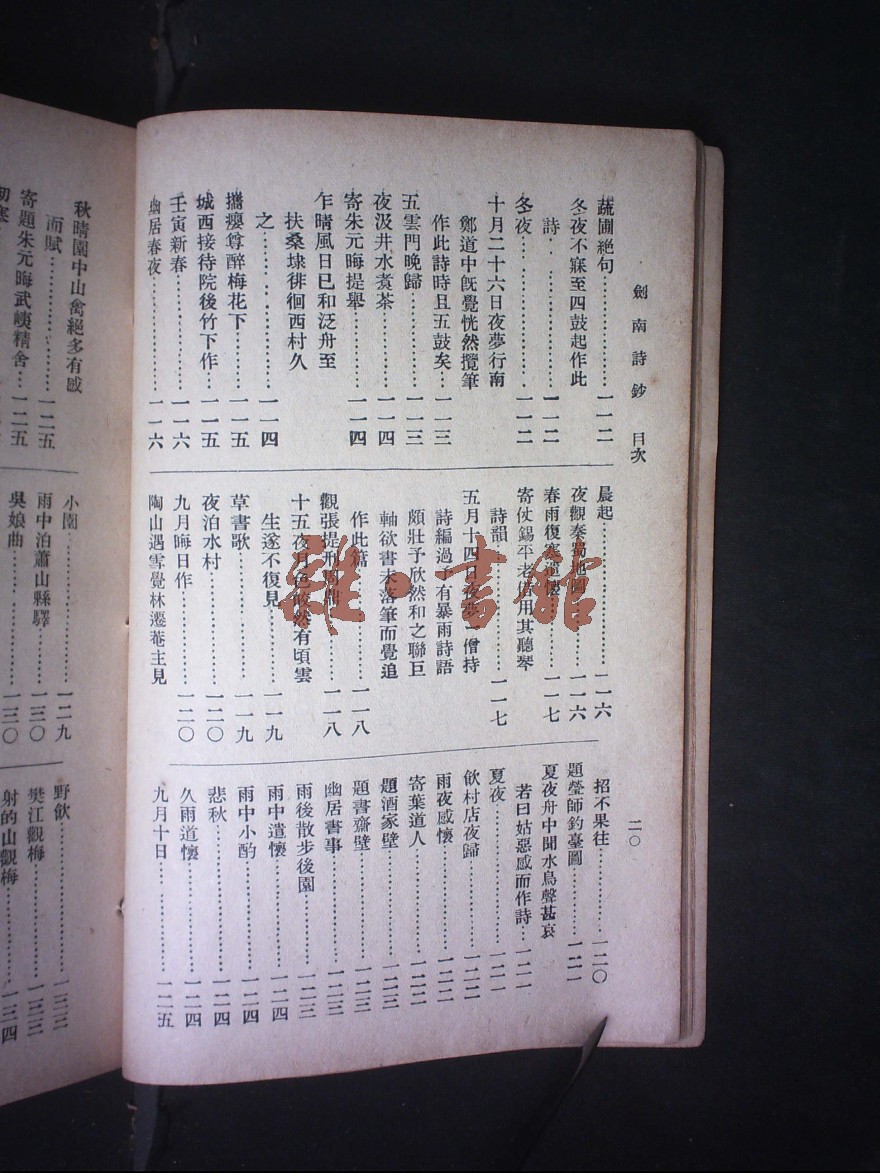 劍南詩鈔 目次
二〇
蔬圃絕句……一一二
冬夜不寐至四鼓起作此
詩……一一二
冬夜……一一二
十月二十六日夜夢行南
鄭道中旣覺恍然攬筆
作此詩時且五鼓矣…一一三
五雲門晚歸……一一三
夜汲井水煑茶……一一四
寄朱元晦提舉……一一四
乍晴風日已和泛舟至
扶桑埭徘徊西村久
之……一一四
攜癭尊醉梅花下……一一五
城西接待院後竹下作…一一五
壬寅新春……一一六
幽居春夜……一一六
晨起……一一六
夜觀秦蜀地圖……一一六
春雨復寒遣懷……一一七
寄仗錫平老借用其聽琴
詩韻……一一七
五月十四日夜夢一僧持
詩編過予有暴雨詩語
頗壯予欣然和之聯巨
軸欲書未落筆而覺追
作此篇……一一八
觀張提刑周鼎……一一八
十五夜月色皎然有頃雲
生遂不復見……一一九
草書歌……一一九
夜泊水村……一二〇
九月晦日作……一二〇
陶山遇雪覺林遷菴主見
招不果往……一二〇
題瑩師釣臺圖……一二一
夏夜舟中聞水鳥聲甚哀
若曰姑惡感而作詩…一二一
夏夜……一二二
飲村店夜歸……一二二
雨夜感懷……一二二
寄葉道人……一二二
題酒家壁……一二三
題書齋壁……一二三
幽居書事……一二三
雨後散步後園……一二三
雨中遣懷……一二四
雨中小酌……一二四
悲秋……一二四
久雨道懷……一二四
九月十日……一二五
秋晴園中山禽絕多有感
而賦……一二五
寄題朱元晦武夷精舍…一二五
小園……一二九
雨中泊蕭山縣驛……一三〇
吳娘曲……一三〇
野飲……一三三
樊江觀梅……一三三
射的山觀梅……一三四